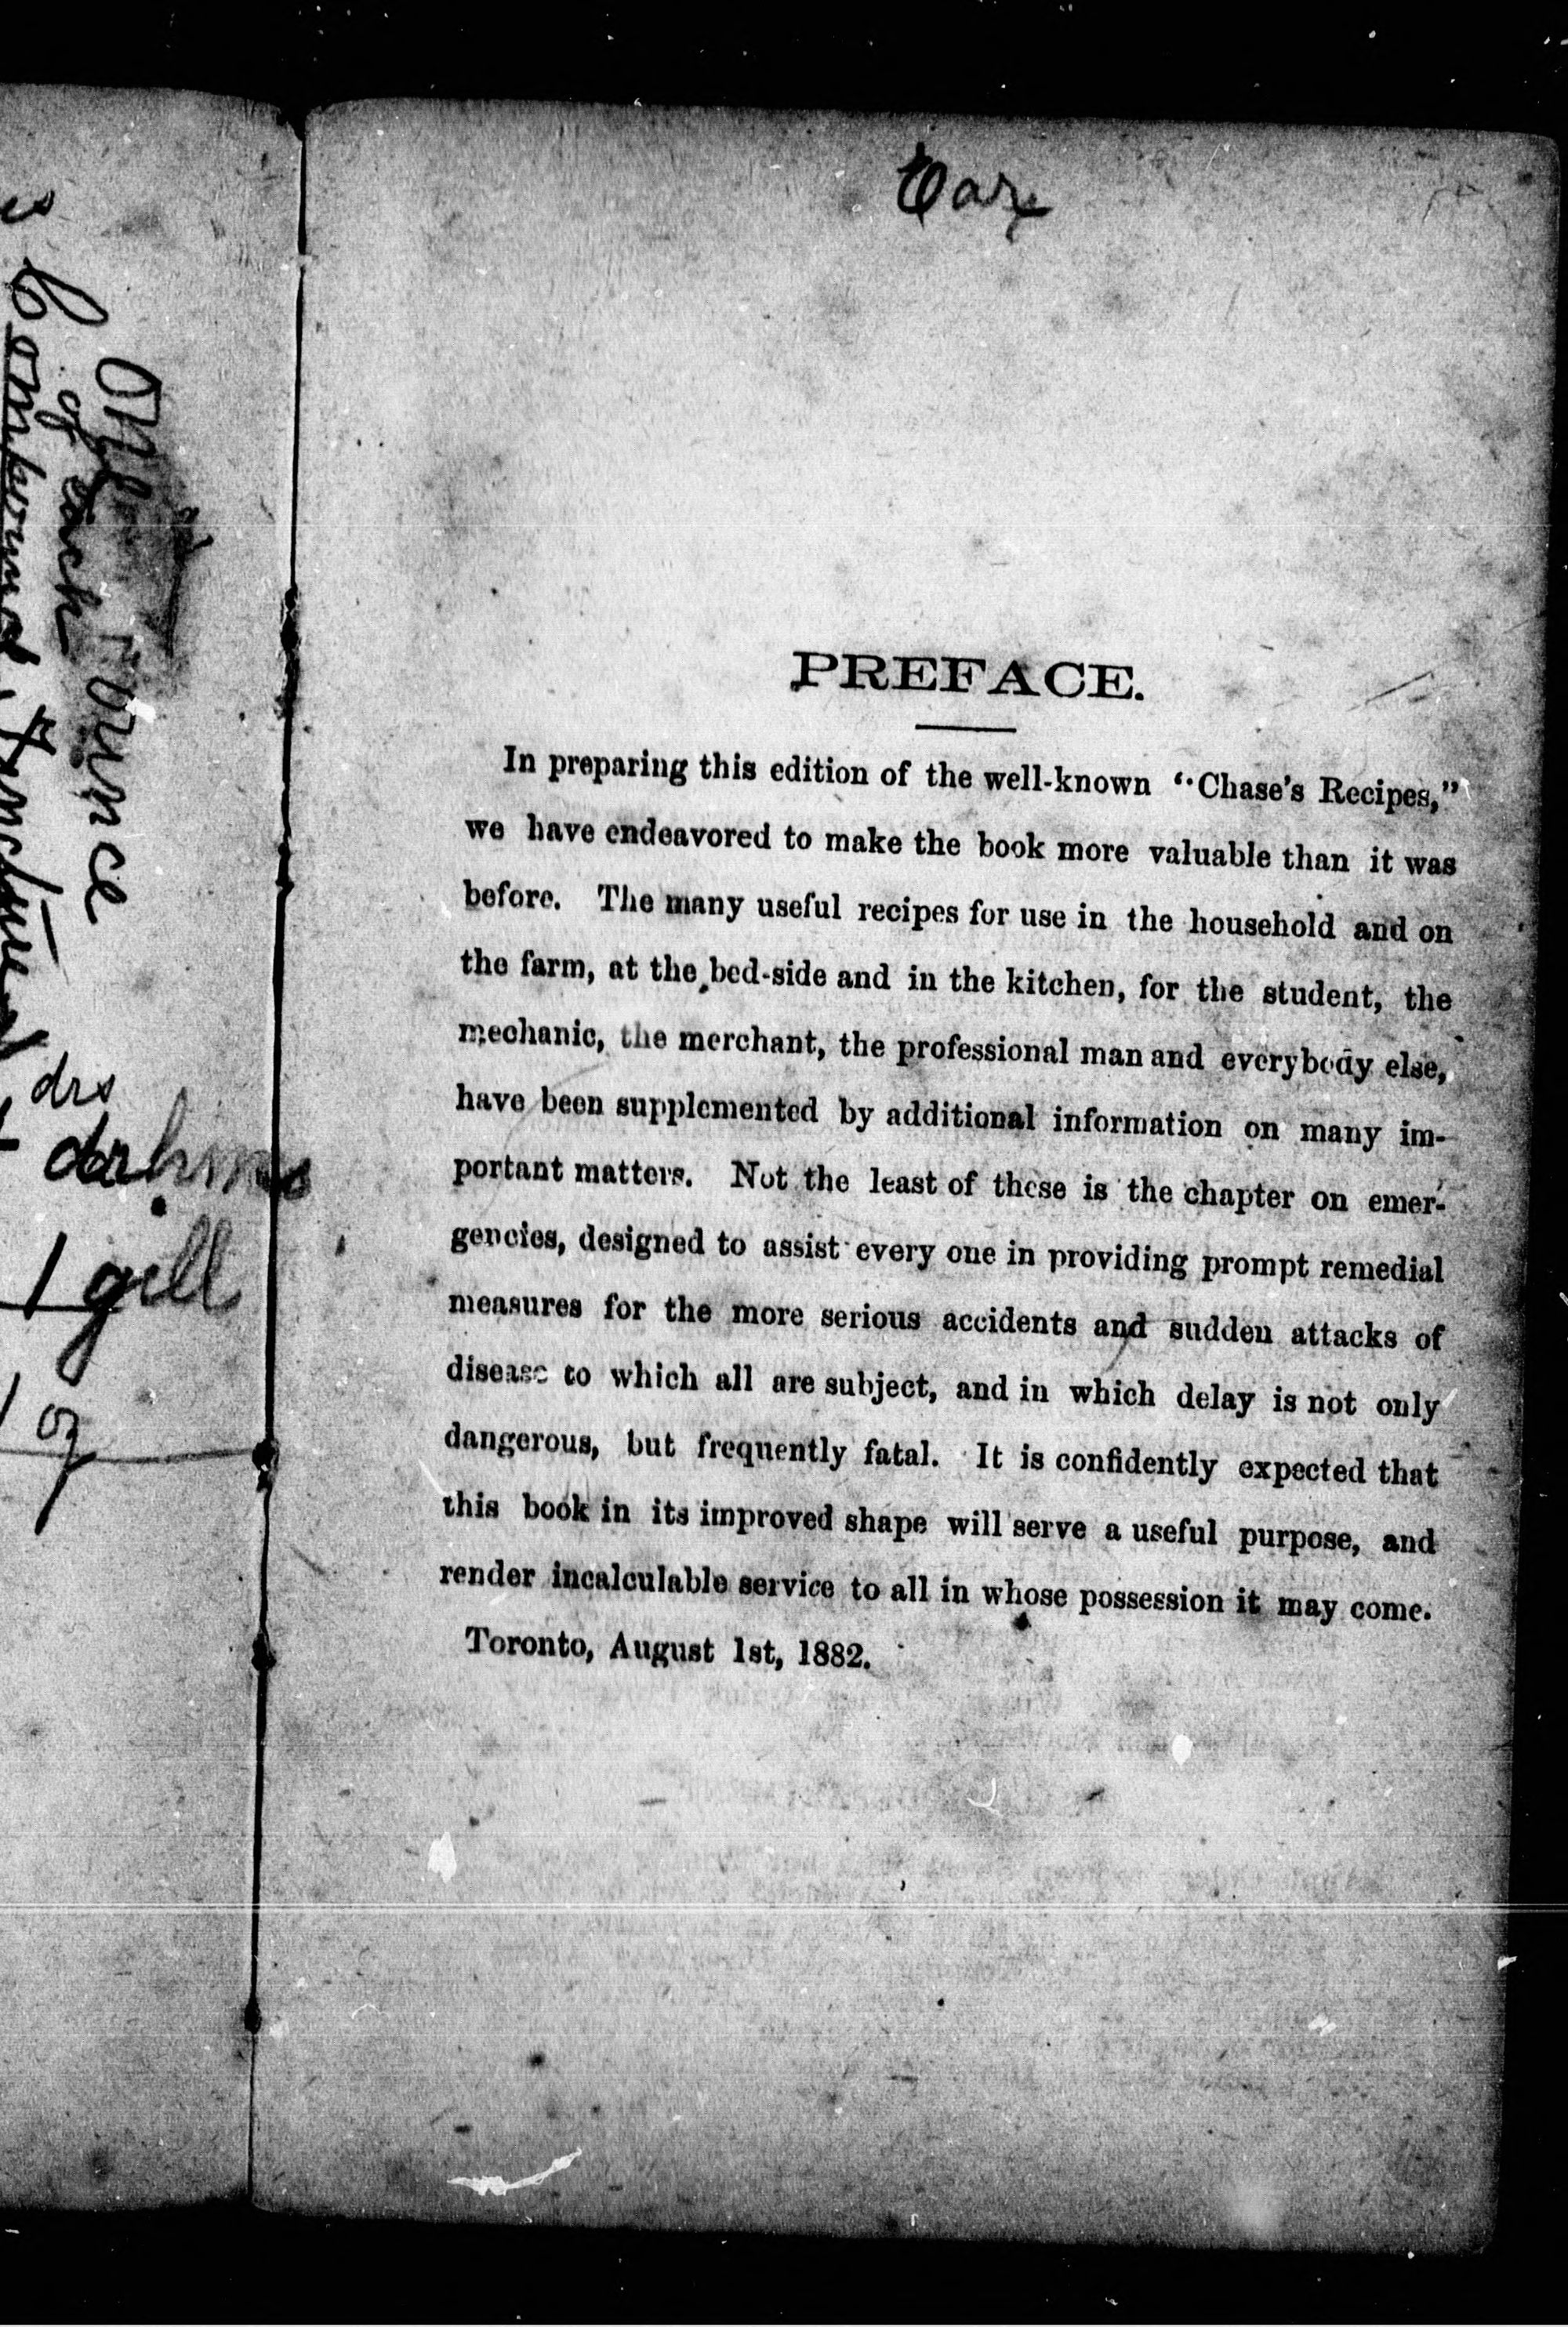 One ounce
of each
drs
1 gill
1 oz
PREFACE.
In preparing this edition of the well-known "Chase's Recipes,"
we have endeavored to make the book more valuable than it was
before. The many useful recipes for use in the household and on
the farm, at the bed-side and in the kitchen, for the student, the
mechanic, the merchant, the professional man and everybody else,
have been supplemented by additional information on many im-
portant matters. Not the least of these is the chapter on emer-
gencies, designed to assist every one in providing prompt remedial
measures for the more serious accidents and sudden attacks of
disease to which all are subject, and in which delay is not only
dangerous, but frequently fatal. It is confidently expected that
this book in its improved shape will serve a useful purpose, and
render incalculable service to all in whose possession it may come.
Toronto, August 1st, 1882.